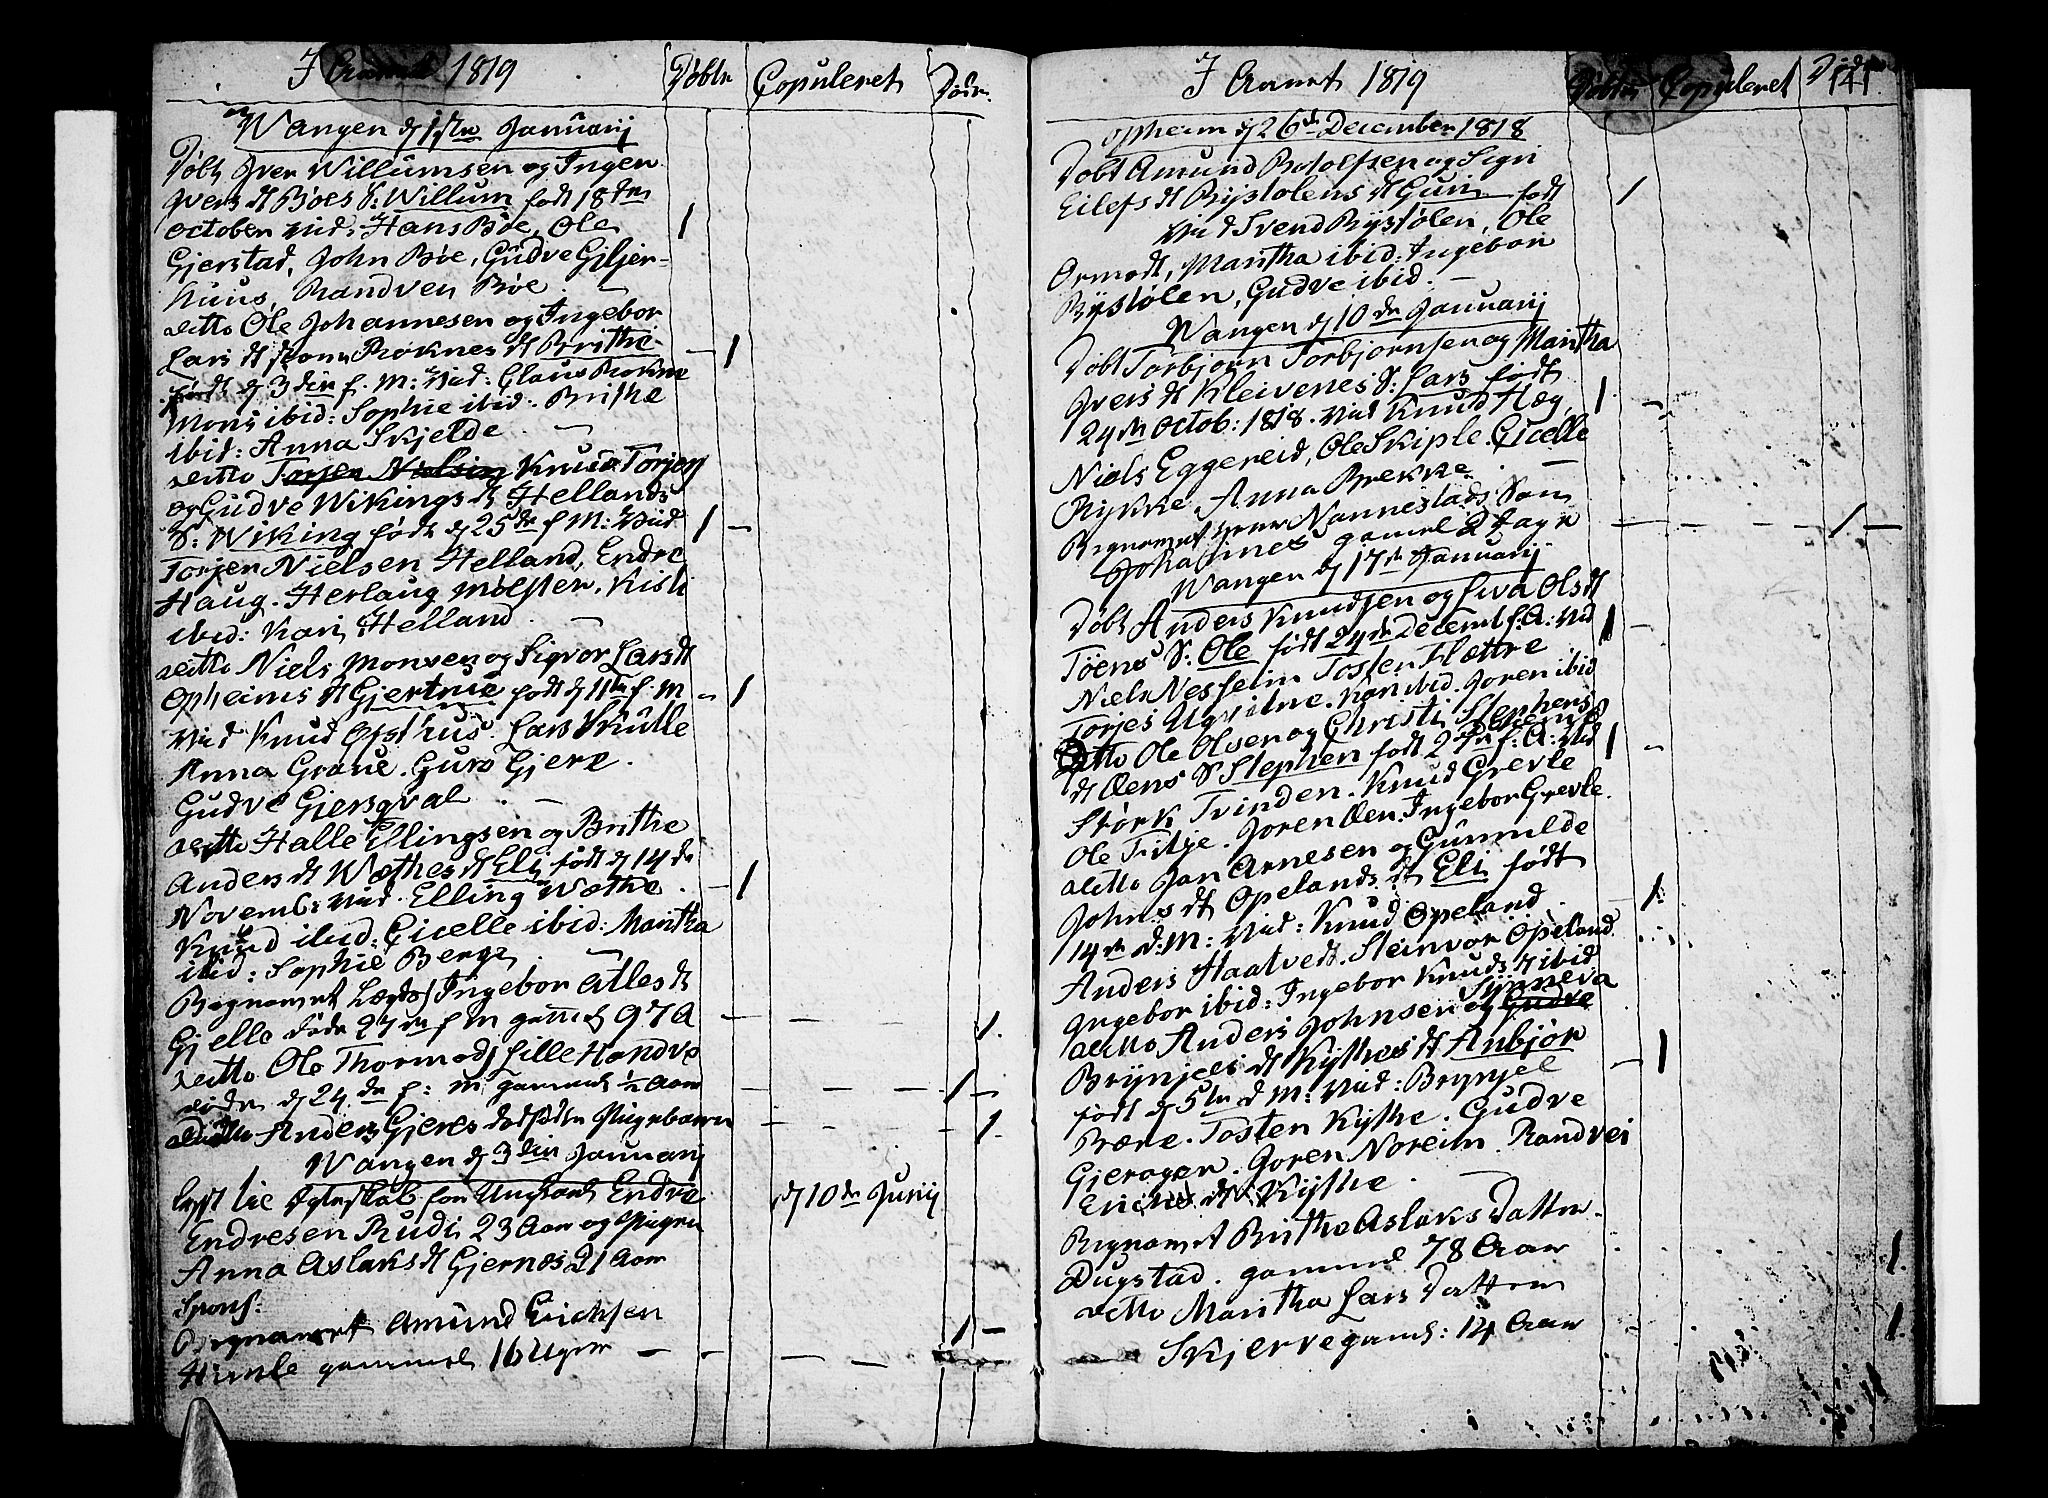 I Aaret 1819
Døbte
Copuleret
Døde
Wangen d 1ste Januarij
Døbt Iver Willumsen og Ingen
Ivers dt Bøes S: Willum født 18de
October vid: Hans Bøe, Ole
Gjerstad, John Bøe, Gudve Giljer-
huus, Randvei Bøe
ditto Ole Johannesen og Ingebor
Lars dt Røknes dt Brithe
født d 3die f. M: vid: Glaus Røkne
Mons ibid: Sophie ibid. Brithe
ibid: Anna Skjelde
ditto Torjer Nielsen Knud Torjers
og Gudve Wikings dt Hellands
S: Wiking født d 25de f M: vid
Torjer Nielsen Helland, Endre
Haug. Herlaug Mølster. Kisti
ibid: Kari Helland
ditto Niels Monsen og Sigvor Lars dt
Opheims dt Gjertrue født d 11te f. M
vid Knud Ofsthus. Lars Skulle
Anna Graue. Guro Gjere.
Gudve Gjersqval
ditto Halle Ellingsen og Brithe
Anders dt Wæthes dt Eli født d 14de
Novemb: vid. Elling Wæthe
Knud ibid: Gicelle ibid: Maritha
ibid: Sophie Berge
Begravet Lægds Ingebor Atles dt
Gjelle døde 27de f M gammel 97 A
ditto Ole Thormods Lille Hondve
døde d 24de f: m gammel 1/2 Aar
ditto Anders Gjeres dødfødte Pigebarn
Wangen d 3die Januarij
Lyst til Ægteskab for Ungkarl Endre
d 10de Junij
Endresen Rudi 23 Aar og Pigen
Anna Aslaks dt Gjernes 21 Aar
Spons:
Begravet Amund Erichsen
Himle gammel 16 Uger
I Aaret 1819
Døbte
Copuleret
Døde
141
Opheim d 26de December 1818
Døbt Amund Botolfsen og Sigri
Eilefs dt Rystølens dt Guri født
vid Svend Rystølen, Ole
Ormodt, Maritha ibid: Ingebor
Rystølen, Gudve ibid.
Wangen d 10de Januarij
Døbt Torbjorn Torbjornsen og Maritha
Ivers dt Kleivenes S: Lars født
24de Octob: 1818. vid Knud Hæg,
Niels Eggereid, Ole Skiple. Gicelle
Rykke. Anna Brekke
Begravet Nannestads Søn
Johannes gamel 2 Dage
Wangen d 17de Januarij
Døbt Anders Knudsen og Siva Ols dt
Tøens S: Ole født 24de Decemb f: A: vid
Niels Nesheim Tosten Flættre
Torjes. Kari ibid. Joren ibid
Ditto Ole Olsen og Christi Stephens
dt Øens S Stephen født 2den f: A: vid
Størk Tvinden. Knud Grevle
Ole Fitje. Joren Øen. Ingebor Grevle.
ditto Jan Arnesen og Gunnilde
Johns dt Opelands dt Eli født
14de d: M: vid: Knud Opeland
Anders Haatvedt. Steinvor Opeland
Ingebor ibid: Ingebor Knuds dt ibid
Synneva
ditto Anders Johnsen og Gudve
Brynjels dt Kythes dt Anbjør
født d 5te d M: vid: Brynjel
Rærne. Tosten Kythe. Gudve
Gjerager. Joren Noreim. Randvei
Erichs dt Kythe
Begravet Brithe Aslaks Datter
Dugstad. gammel 78 Aar
ditto Maritha Lars Datter
Skjerve gamel: 14 Aar